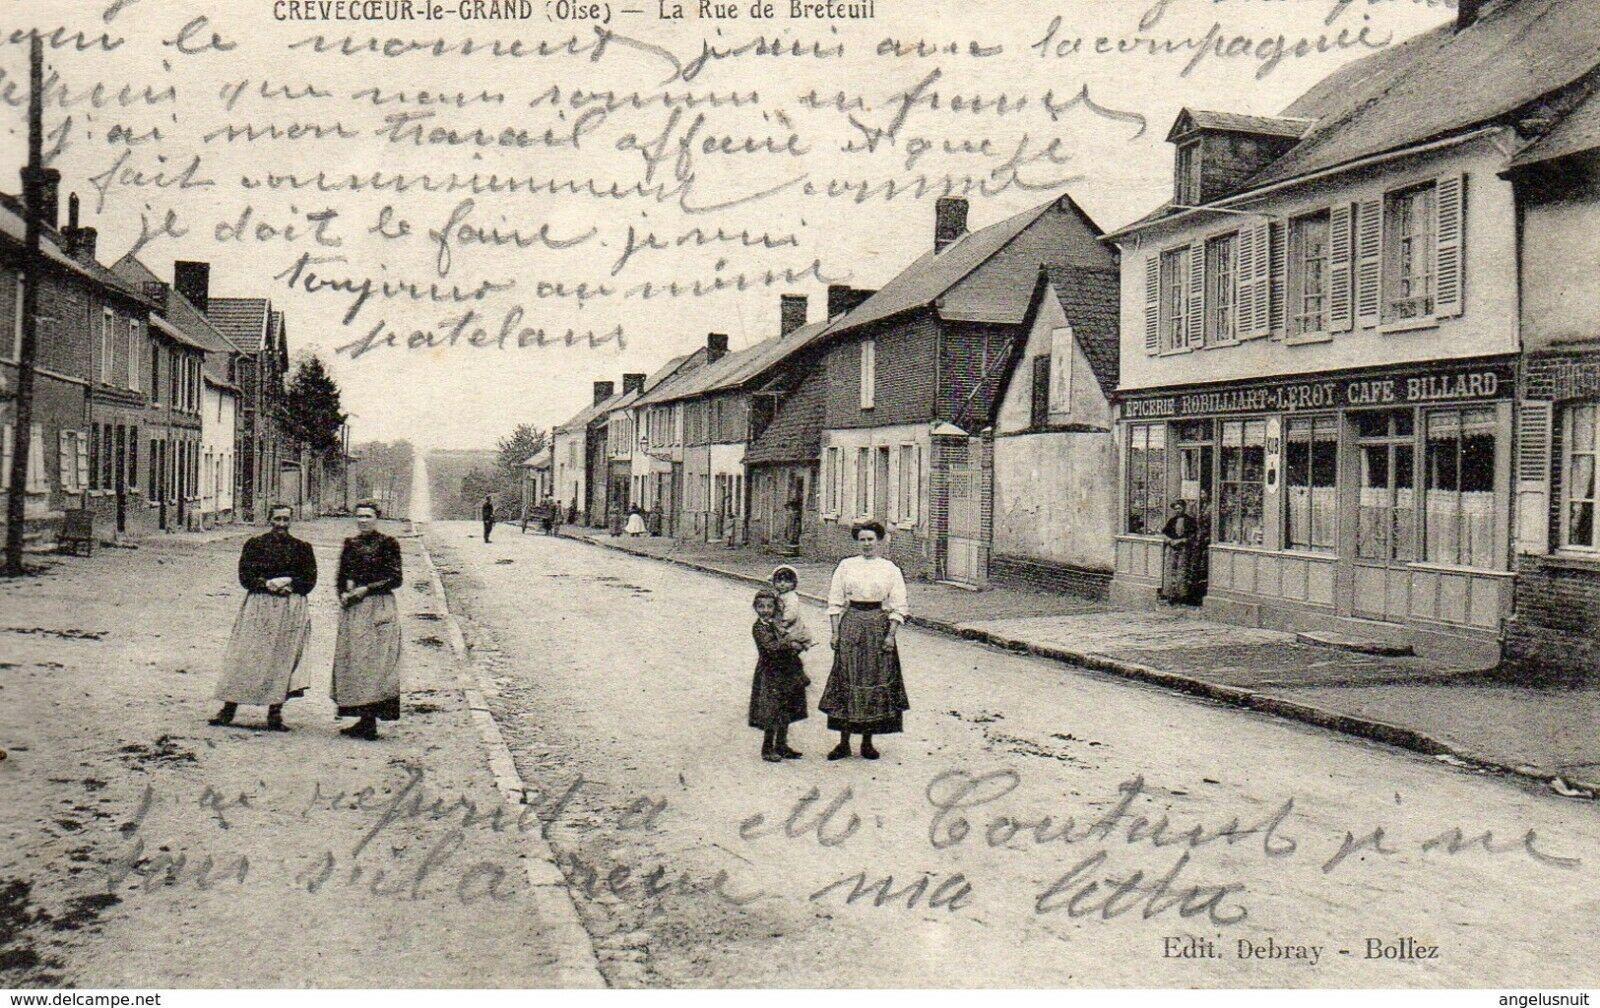 CRÈVECŒUR-le-GRAND (Oise) — La Rue de Breteuil
le moment je suis avec la compagnie
depuis que nous sommes en france
j'ai mon travail affairé et que je
fait consensieument comme
je doit le faire. je suis
toujours au même
patelain
EPICERIE ROBILLIART-LEROY CAFE BILLARD
j'ai repondu à M. Coutant je ne
sais s'il a reçue ma lettre
Edit. Debray - Bollez
www.delcampe.net
angelusnuit